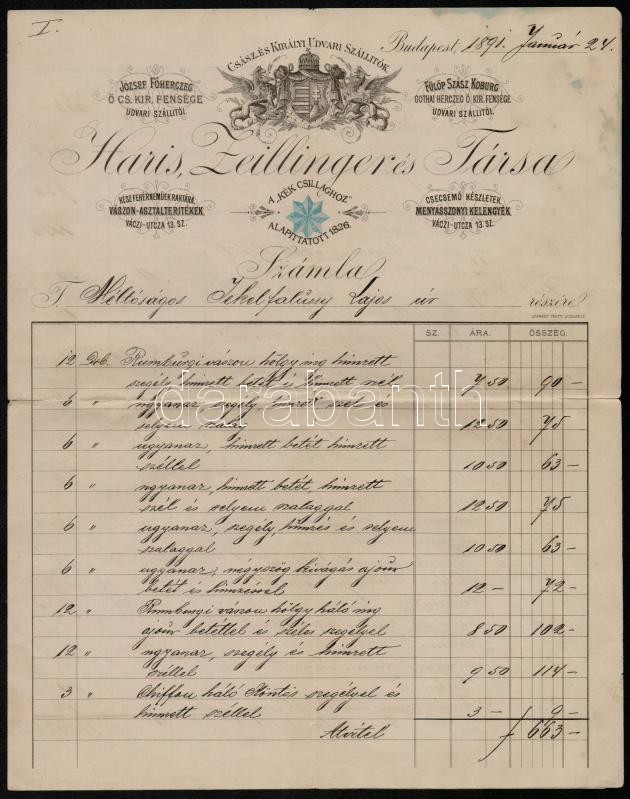 I.
Budapest, 1891. Január 24.
CSÁSZ. ÉS KIRÁLYI UDVARI SZÁLLITÓK
JÓZSEF FŐHERCZEG
Ő CS. KIR. FENSÉGE
UDVARI SZÁLLITÓI.
FÜLÖP SZÁSZ KOBURG
GOTHAI HERCZEG Ő. KIR. FENSÉGE
UDVARI SZÁLLITÓI.
Haris, Zeillinger és Társa
KÉSZ FEHÉRNEMŰEK RAKTÁRA,
VÁSZON-ASZTALTERITÉKEK
VÁCZI-UTCZA 13. SZ.
A „KÉK CSILLAGHOZ”
ALAPITTATOTT 1826.
CSECSEMŐ KÉSZLETEK,
MENYASSZONYI KELENGYÉK
VÁCZI-UTCZA 13. SZ.
Számla
T. Méltóságos Jekelfalussy Lajos úr részére
SZ. ÁRA. ÖSSZEG.
12 Drb. Rumburgi vászon hölgy ing himzett
szegély himzett betét és himzett szél 7 50 90 –
6 " ugyanaz szegély, himzett szél és
selyem szalag 12 50 75
6 " ugyanaz, himzett betét himzett
széllel 10 50 63 –
6 " ugyanaz, himzett betét, himzett
szél és selyem szalaggal 12 50 75
6 " ugyanaz, szegély, himzés és selyem
szalaggal 10 50 63 –
6 " ugyanaz, négyszög kivágás ajour
betét és himzéssel 12 – 72 –
12 " Rumburgi vászon hölgy háló ing
ajour betéttel és széles szegélyel 8 50 102 –
12 " ugyanaz, szegély és himzett
széllel 9 50 114 –
3 " Chiffon háló Köntös szegélyel és
himzett széllel 3 – 9 –
Átvitel 663 –
darabanth